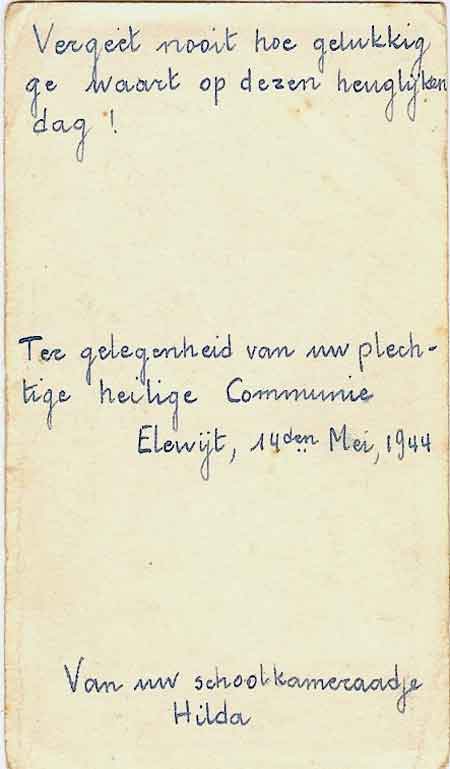 Vergeet nooit hoe gelukkig
ge waart op dezen heuglijken
dag !
Ter gelegenheid van uw plech-
tige heilige Communie
Elewijt, 14den Mei, 1944
Van uw schoolkameraadje
Hilda